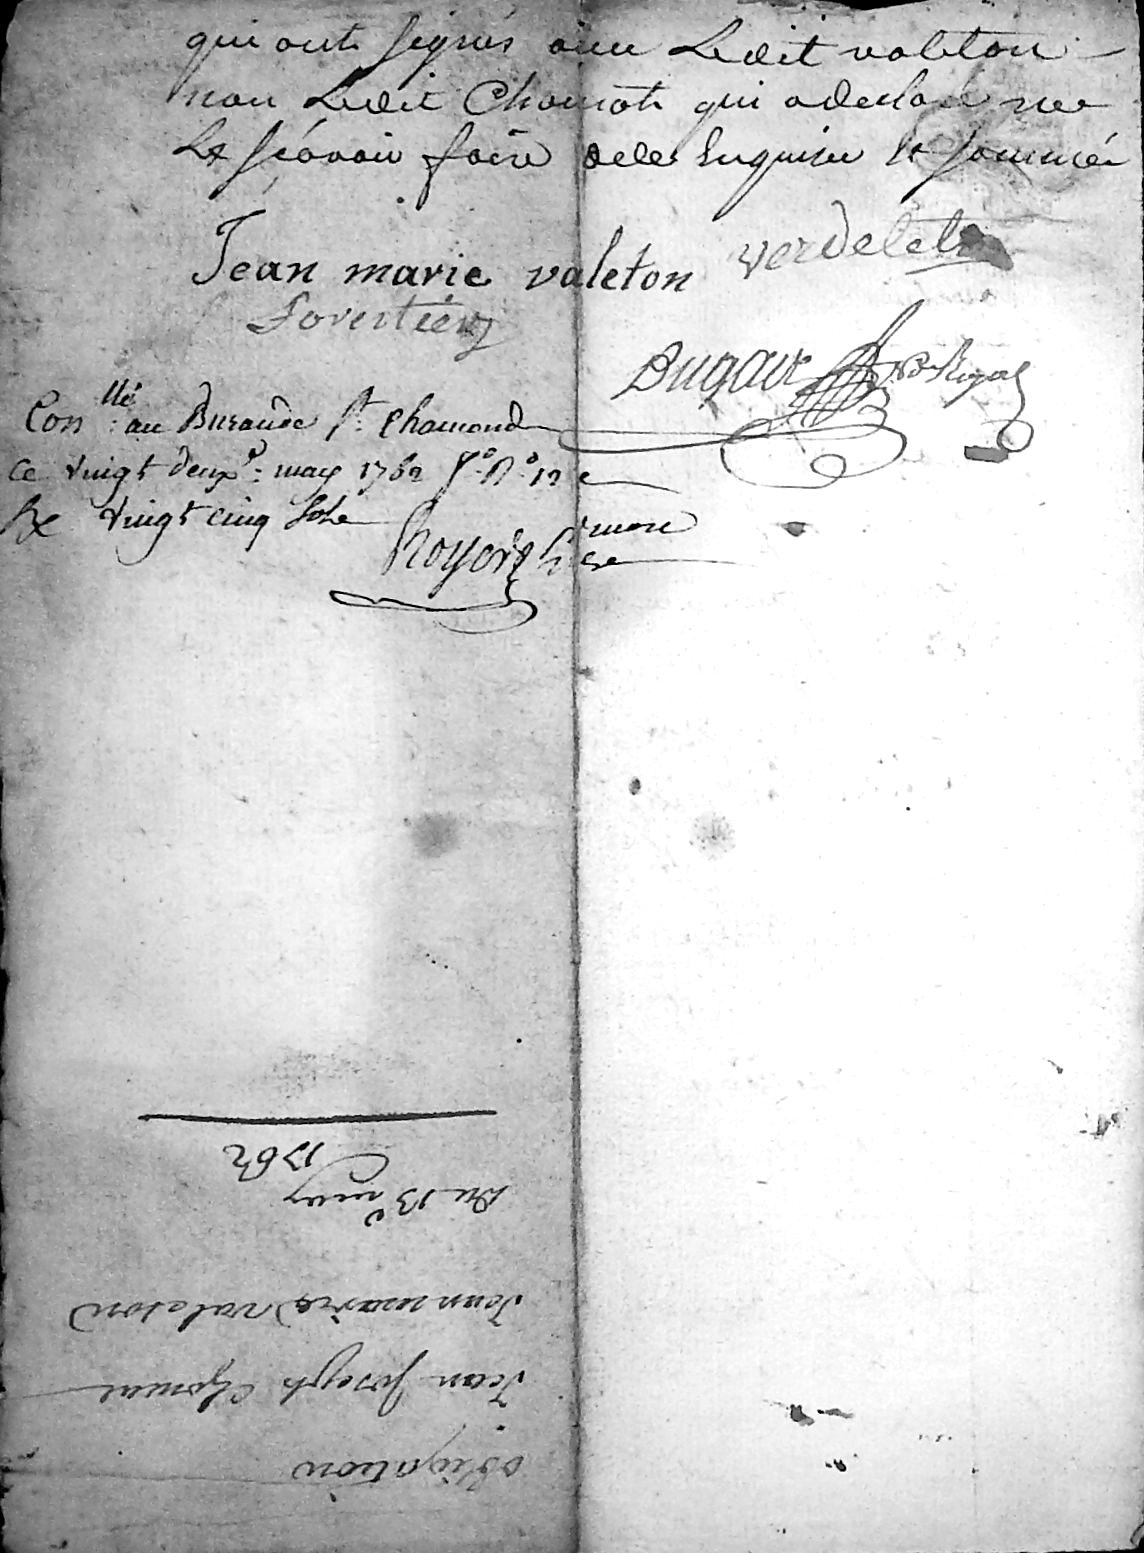 qui ont signés avec Ledit valeton
non Ledit Chomat qui a declaré ne
Le sçavoir faire de ce Enquis et sommé
Jean marie valeton verdelet
Forestier
Dugait Nre Royal
Conllé au Bureau de St. Chamond
ce vingt deuxe. may 1762 fo. No. 12 e
Rx vingt cinq sols
Royer
obligation
Jean Joseph Chomat
Jean marie valeton
Du 13e may
1762